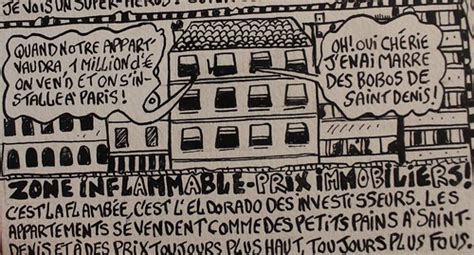 JE VOIS UN SUPER-HÉROS!
QUAND NOTRE APPART
VAUDRA 1 MILLION D'€
ON VEND ET ON S'IN-
STALLE À PARIS!
OH! OUI CHÉRIE
J'EN AI MARRE
DES BOBOS DE
SAINT DENIS!
ZONE INFLAMMABLE-PRIX IMMOBILIERS!
C'EST LA FLAMBÉE, C'EST L'ELDORADO DES INVESTISSEURS. LES
APPARTEMENTS SE VENDENT COMME DES PETITS PAINS À SAINT-
DENIS ET À DES PRIX TOUJOURS PLUS HAUT, TOUJOURS PLUS FOUS.